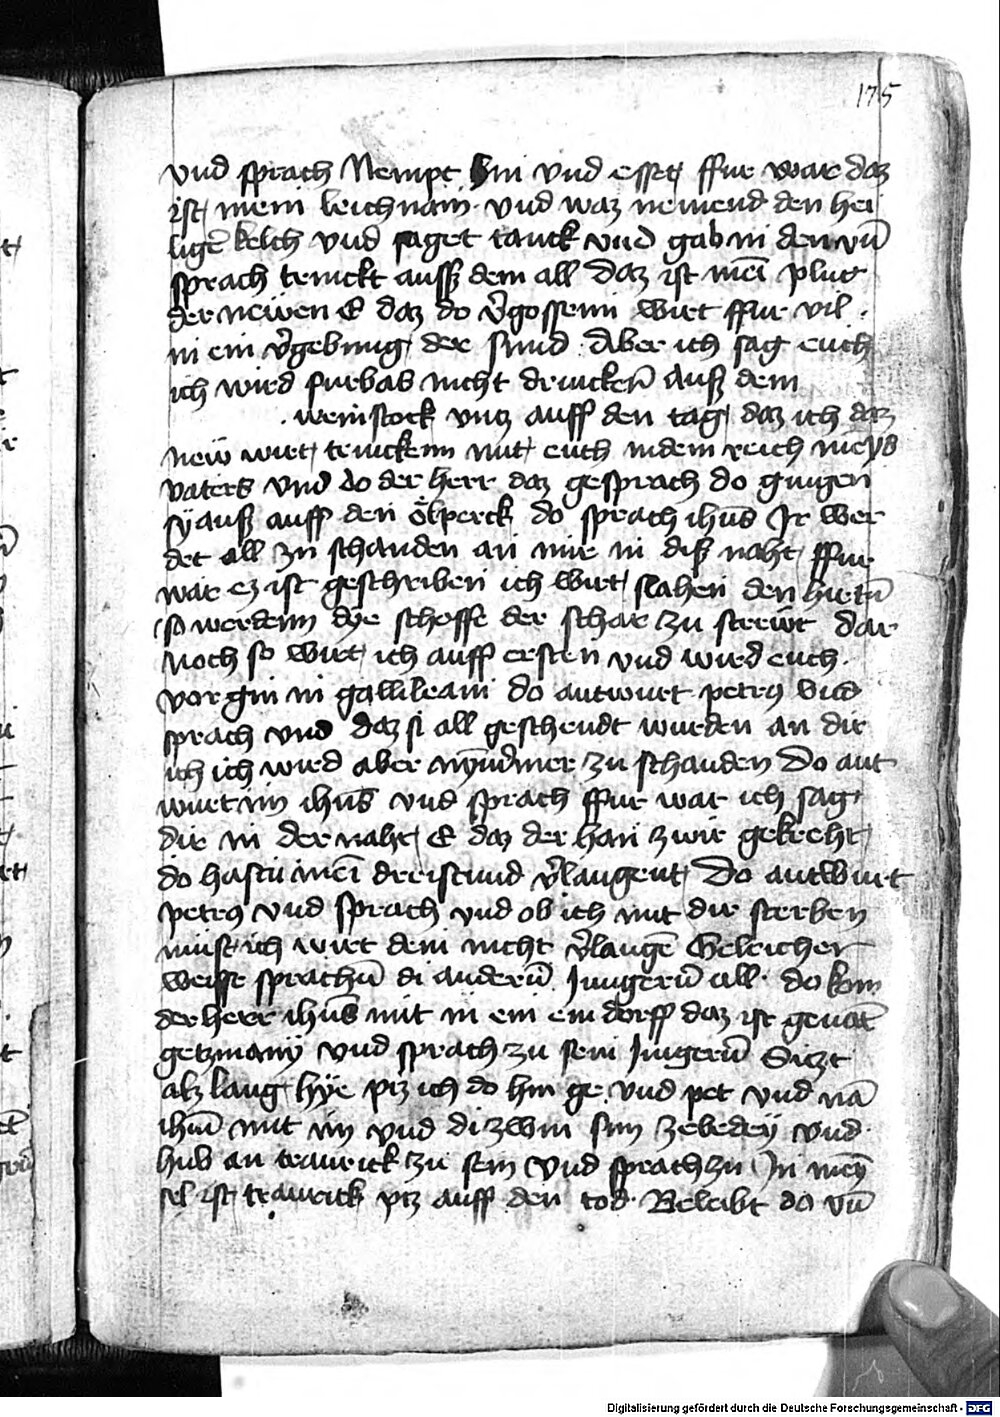 175
vnd sprach Nempt hin vnd esset ffur war daz
ist mein leichnam vnd waz nemend den hei
ligē kelch vnd saget danck vnd gab in den vñ
sprach trinckt auß dem all daz ist mei plut
der newen E daz do v̄gossenn wirt ffur vil
in ein v̄gebung der sund Aber ich sag euch
ich wird furbas nicht drinckeñ auß dem
weinstock vntz auff den tag daz ich daz
new wirt trinckenn mit euch indem reich meys
vaters vnd do der herr daz gesprach do gingen
sy auß auff den ölperck do sprach ihūs Ir wer
det all zu schanden an mir in diß naht ffur
war ez ist geschriben ich wirt slahen den hirtñ
so werdenn dye schoffe der schar zu strewt dar
noch so wirt ich auff ersten vnd wird euch
vor gin in gallileam do antwurt petrus vnd
sprach vnd daz si all geschendt wurden an dir
ich ich wird aber nym̄mer zu schanden Do ant
wurt im ihūs vnd sprach ffur war ich sag
dir in der naht E daz der han zwir gekreht
do hastu mei dreistund v̄laugent Do antwurt
petrus vnd sprach vnd ob ich mit dir sterben
must ich wirt dein nicht v̄laugē Geleicher
weisse sprachñ di anderñ Jungerñ all do kom
der herr ihūs mit in ein ein dorff daz ist genāt
getzmany vnd sprach zu sein Jungerñ Sitzt
alz lang hye piz ich do hin ge vnd pet vnd nā
ihm mit im vnd di zwin sun zebedey vnd
hub an traurick zu sein vnd sprach zu In meÿ
sel ist traurick piz auff den tod Beleibt do vñ
Digitalisierung gefördert durch die Deutsche Forschungsgemeinschaft - DFG